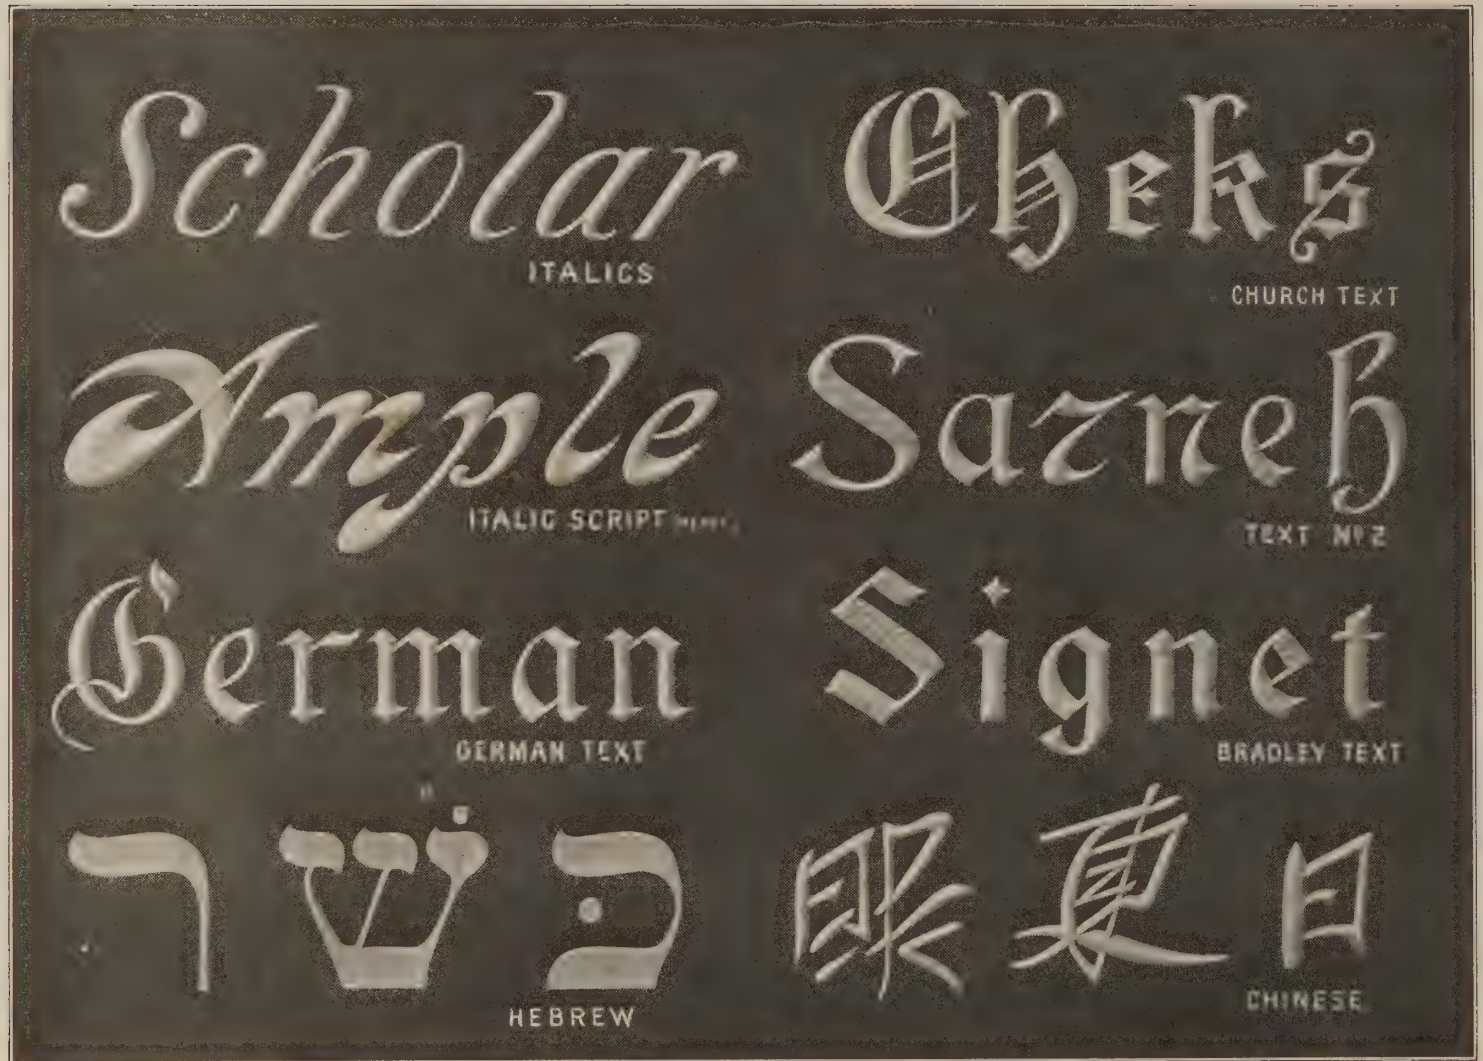 Scholar
ITALICS
Cheks
CHURCH TEXT
Ample
ITALIC SCRIPT
Sarneh
TEXT Nº 2
German
GERMAN TEXT
Signet
BRADLEY TEXT
כּשׁר
HEBREW
日
CHINESE